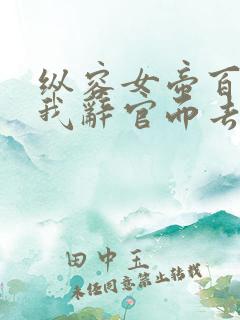 纵容女帝百
我辞官而去
田中玉
未经同意禁止转载